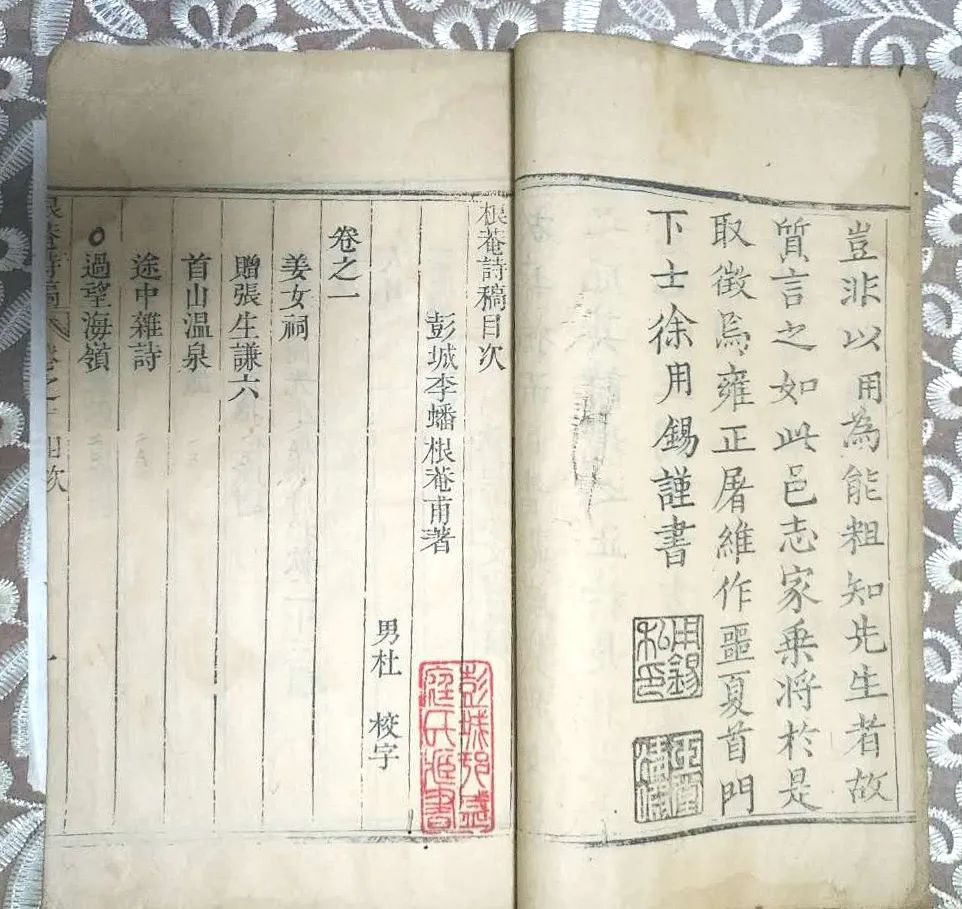 豈非以用為能粗知先生者故
質言之如此邑志家乗将於是
取徵焉雍正屠維作噩夏首門
下士徐用錫謹書
用錫私印
根菴詩稿目次
彭城李蟠根菴甫著
男杜 校字
卷之一
姜女祠
贈張生謙六
首山温泉
途中雜詩
過望海嶺